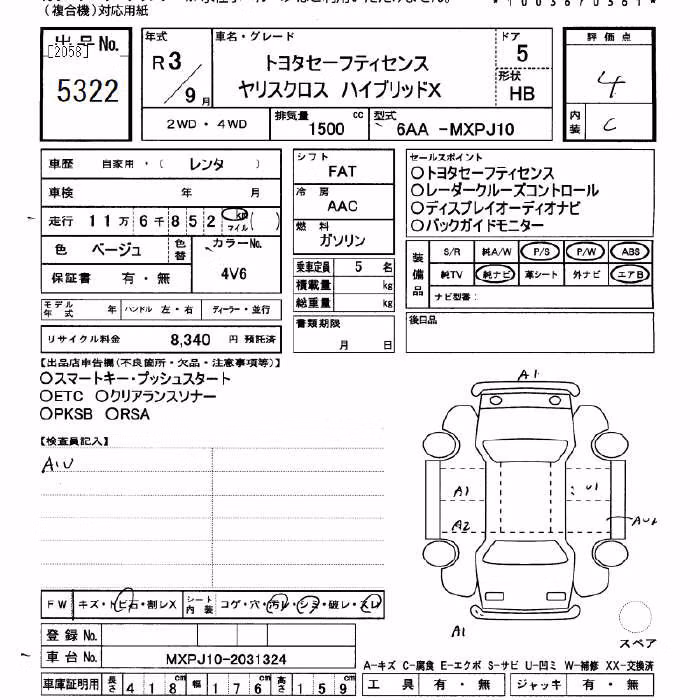 (複合機)対応用紙
出品No.
[2058]
5322
年式
R3/9月
車名・グレード
トヨタセーフティセンス
ヤリスクロス ハイブリッドX
ドア
5
形状
HB
2WD・4WD
排気量
1500 cc
型式
6AA -MXPJ10
評価点
4
内装
C
車歴 自家用・( レンタ )
車検 年 月
走行 11万6千852 km マイル ( )
色 ベージュ
色替
カラーNo.
4V6
保証書 有・無
モデル年式 年
ハンドル 左・右
ディーラー・並行
リサイクル料金 8,340 円 預託済
シフト
FAT
冷房
AAC
燃料
ガソリン
乗車定員 5 名
積載量 kg
総重量 kg
書類期限
月 日
セールスポイント
○トヨタセーフティセンス
○レーダークルーズコントロール
○ディスプレイオーディオナビ
○バックガイドモニター
装備品
S/R 純A/W P/S P/W ABS
純TV 純ナビ 革シート 外ナビ エアB
ナビ型番:
後日品
【出品店申告欄(不良箇所・欠品・注意事項等)】
○スマートキー・プッシュスタート
○ETC ○クリアランスソナー
○PKSB ○RSA
【検査員記入】
A1U
A1
A1
A2
U1
AU2
A1
スペア
FW キズ・トビ石・割レX
シート内装 コゲ・穴・汚レ・シミ・破レ・スレ
登録No.
車台No. MXPJ10-2031324
車庫証明用 長さ 418cm 幅 176cm 高さ 159cm
A-キズ C-腐食 E-エクボ S-サビ U-凹ミ W-補修 XX-交換済
工具 有・無 ジャッキ 有・無